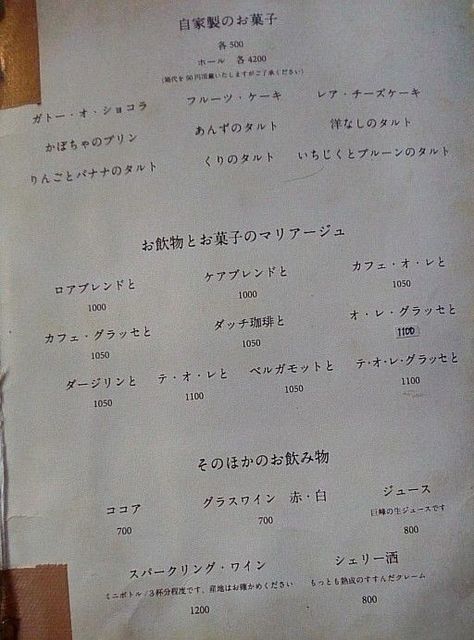 自家製のお菓子
各500
ホール 各4200
(箱代を50円頂戴いたしますがご了承ください)
ガトー・オ・ショコラ フルーツ・ケーキ レア・チーズケーキ
かぼちゃのプリン あんずのタルト 洋なしのタルト
りんごとバナナのタルト くりのタルト いちじくとプルーンのタルト
お飲物とお菓子のマリアージュ
ロアブレンドと ケアブレンドと カフェ・オ・レと
1000 1000 1050
カフェ・グラッセと ダッチ珈琲と オ・レ・グラッセと
1050 1050 1100
ダージリンと テ・オ・レと ベルガモットと テ・オ・レ・グラッセと
1050 1100 1050 1100
そのほかのお飲み物
ココア グラスワイン 赤・白 ジュース
巨峰の生ジュースです
700 700 800
スパークリング・ワイン シェリー酒
ミニボトル/3杯分程度です、産地はお確かめください もっとも熟成のすすんだクレーム
1200 800